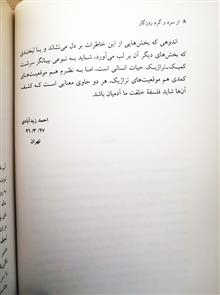 ۸ از سرد و گرم روزگار
اندوهی که بخش‌هایی از این خاطرات بر دل می‌نشاند و یا لبخندی
که بخش‌های دیگر آن بر لب می‌آورد، شاید به نوعی بیانگر سرشت
کمیک-تراژیک حیات انسانی است، اما به نظرم هم موقعیت‌های
کمدی هم موقعیت‌های تراژیک، هر دو حاوی معنایی است که کشف
آن‌ها شاید فلسفهٔ خلقت ما آدمیان باشد.
احمد زیدآبادی
۹۶/۳/۲۷
تهران